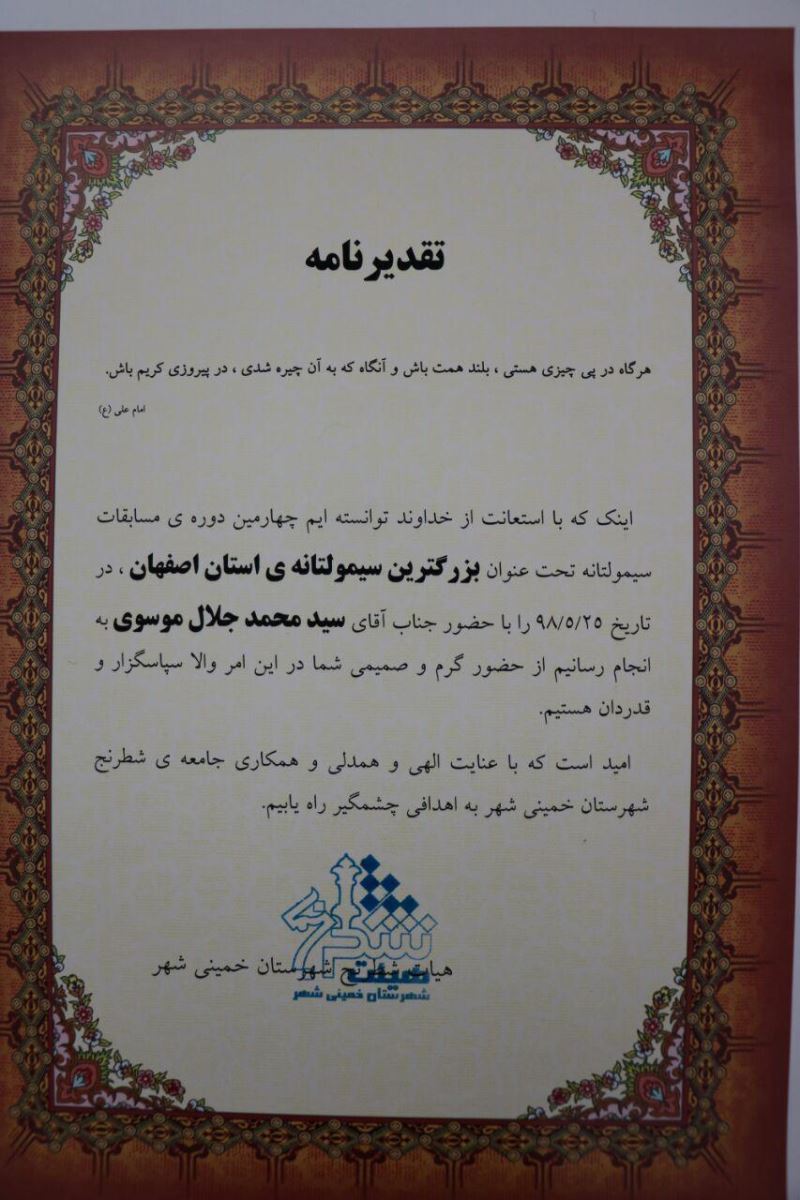 تقدیرنامه
هرگاه در پی چیزی هستی ، بلند همت باش و آنگاه که به آن چیره شدی ، در پیروزی کریم باش.
امام علی (ع)
اینک که با استعانت از خداوند توانسته ایم چهارمین دوره ی مسابقات
سیمولتانه تحت عنوان بزرگترین سیمولتانه ی استان اصفهان ، در
تاریخ ۹۸/۵/۲۵ را با حضور جناب آقای سید محمد جلال موسوی به
انجام رسانیم از حضور گرم و صمیمی شما در این امر والا سپاسگزار و
قدردان هستیم.
امید است که با عنایت الهی و همدلی و همکاری جامعه ی شطرنج
شهرستان خمینی شهر به اهدافی چشمگیر راه یابیم.
هیات شطرنج شهرستان خمینی شهر
شطرنج
هیئت
شهرستان خمینی شهر